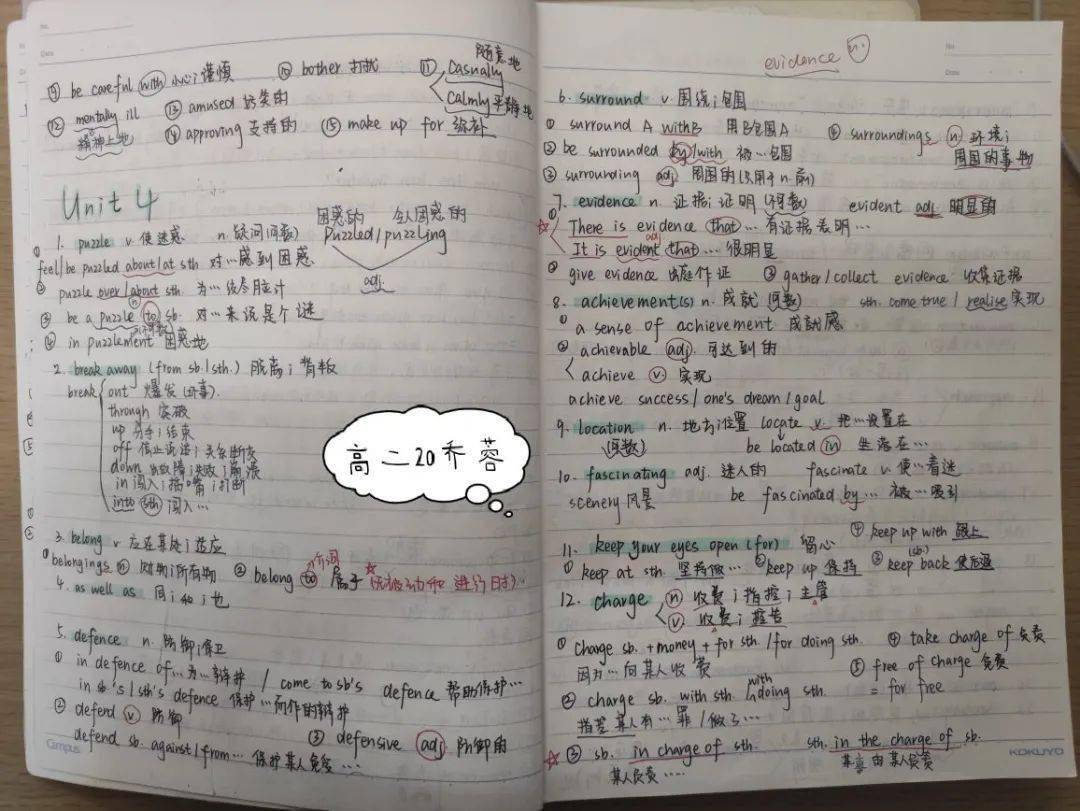 ⑨ be careful with 小心;谨慎 ⑩ bother 打扰 ⑪ casually 随意地
calmly 平静地
⑫ mentally ill ⑬ amused 逗笑的
精神上地 ⑭ approving 支持的 ⑮ make up for 弥补
Unit 4
困惑的 令人困惑的
1. puzzle v. 使迷惑 n. 疑问(可数) puzzled/puzzling
adj.
① feel/be puzzled about/at sth 对…感到困惑
② puzzle over/about sth. 为…绞尽脑汁
③ be a puzzle to sb. 对…来说是个谜
④ in puzzlement 困惑地
2. break away (from sb./sth.) 脱离;背叛
break out 爆发(坏事)
through 突破
up 分手;结束
off 停止说话;关系断裂
down 出故障;失败;崩溃
in 闯入;插嘴;打断
into sth 闯入…
高二20乔蓉
3. belong v 应在某处;适应
① belongings n 财物;所有物 ② belong to 属于 (无被动和进行时)
介词
4. as well as 同;和;也
5. defence n. 防御;保卫
① in defence of…为…辩护 / come to sb's defence 帮助保护…
in sb's/sth's defence 保护…而作的辩护
② defend v 防御 ③ defensive adj 防御的
defend sb. against/from… 保护某人免受…
Campus
evidence n.
6. surround v. 围绕;包围
① surround A with B 用B包围A ④ surroundings n 环境;
周围的事物
② be surrounded by/with 被…包围
③ surrounding adj 周围的(只用于n.前)
7. evidence n. 证据;证明(不可数) evident adj 明显的
① There is evidence that… 有证据表明…
It is evident that… 很明显
adj
② give evidence 出庭作证 ③ gather/collect evidence 收集证据
8. achievement(s) n. 成就 (可数) sth. come true / realise 实现
① a sense of achievement 成就感
② achievable adj. 可达到的
achieve v 实现
achieve success/one's dream/goal
9. location n. 地方;位置 locate v. 把…设置在
(可数) be located in 坐落在…
10. fascinating adj. 迷人的 fascinate v. 使…着迷
scenery 风景 be fascinated by… 被…吸引
④ keep up with 跟上
11. keep your eyes open (for) 留心
① keep at sth. 坚持做… ② keep up 保持 ③ keep back (sb.) 使后退
12. charge n 收费;指控;主管
v 收费;控告
① charge sb. + money + for sth/for doing sth. ④ take charge of 负责
因为…向某人收费 ⑤ free of charge 免费
② charge sb. with sth. with doing sth. = for free
指控某人有…罪/做了…
③ sb. in charge of sth. sth. in the charge of sb.
某人负责… 某事由某人负责
KOKUYO